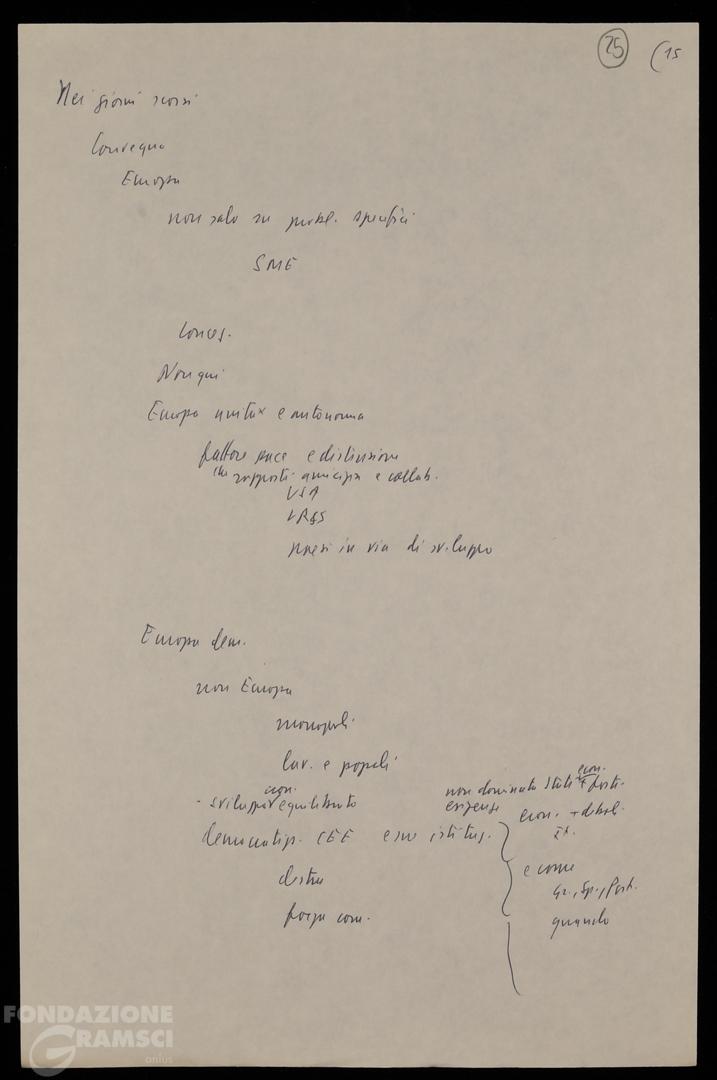 25 (15
Nei giorni scorsi
Convegno
Europa
non solo su probl. specifici
SME
Conces.
Non qui
Europa unita e autonoma
fattore pace e distensione
rapporti amicizia e collab.
USA
URSS
paesi in via di sviluppo
Europa dem.
non Europa
monopoli
lav. e popoli
econ.
- sviluppo equilibrato
non dominata Stati econ. + forti
esigenze econ. + deboli
It.
democratizz. CEE e sue istituz.
e come
destra
Gr., Sp., Port.
forza com.
quando
FONDAZIONE
GRAMSCI
onlus